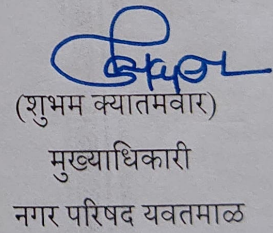 (शुभम क्यातमवार)
मुख्याधिकारी
नगर परिषद यवतमाळ